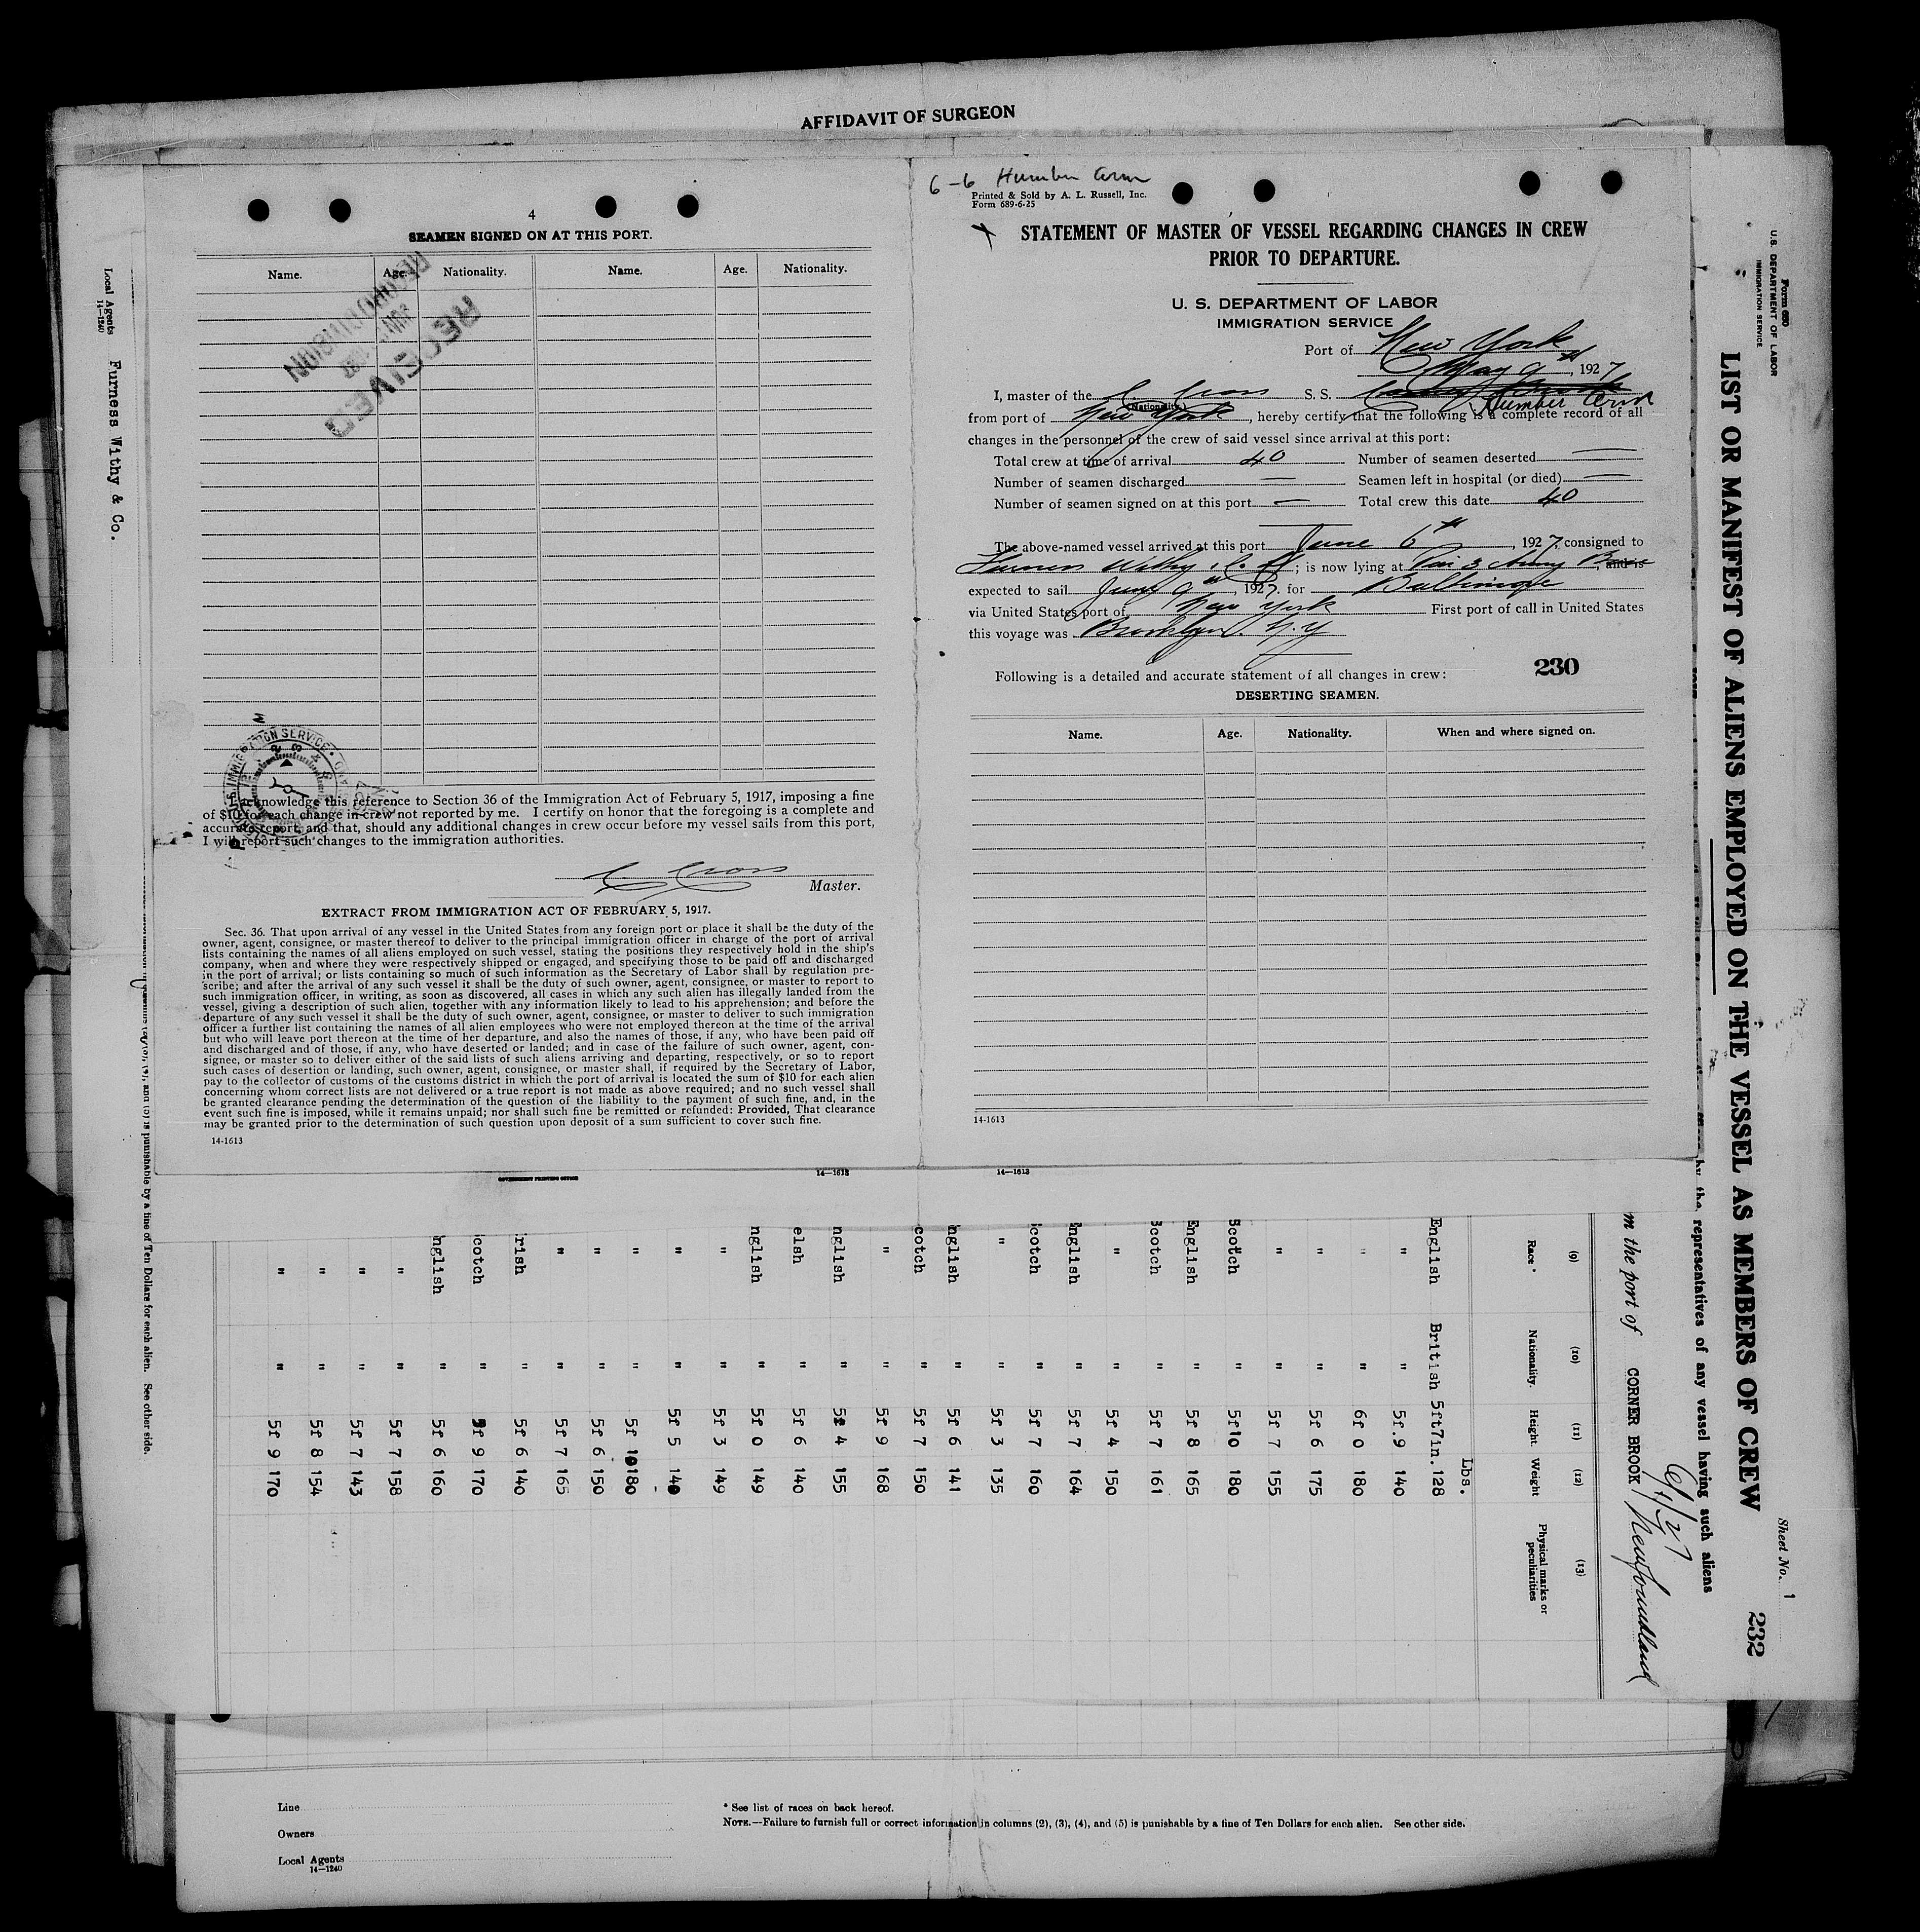 AFFIDAVIT OF SURGEON
4
SEAMEN SIGNED ON AT THIS PORT.
Name. Age. Nationality. Name. Age. Nationality.
RECEIVED
I acknowledge this reference to Section 36 of the Immigration Act of February 5, 1917, imposing a fine
of $10 for each change in crew not reported by me. I certify on honor that the foregoing is a complete and
accurate report, and that, should any additional changes in crew occur before my vessel sails from this port,
I will report such changes to the immigration authorities.
C Cross
Master.
EXTRACT FROM IMMIGRATION ACT OF FEBRUARY 5, 1917.
Sec. 36. That upon arrival of any vessel in the United States from any foreign port or place it shall be the duty of the
owner, agent, consignee, or master thereof to deliver to the principal immigration officer in charge of the port of arrival
lists containing the names of all aliens employed on such vessel, stating the positions they respectively hold in the ship's
company, when and where they were respectively shipped or engaged, and specifying those to be paid off and discharged
in the port of arrival; or lists containing so much of such information as the Secretary of Labor shall by regulation pre-
scribe; and after the arrival of any such vessel it shall be the duty of such owner, agent, consignee, or master to report to
such immigration officer, in writing, as soon as discovered, all cases in which any such alien has illegally landed from the
vessel, giving a description of such alien, together with any information likely to lead to his apprehension; and before the
departure of any such vessel it shall be the duty of such owner, agent, consignee, or master to deliver to such immigration
officer a further list containing the names of all alien employees who were not employed thereon at the time of the arrival
but who will leave port thereon at the time of her departure, and also the names of those, if any, who have been paid off
and discharged and of those, if any, who have deserted or landed; and in case of the failure of such owner, agent, con-
signee, or master so to deliver either of the said lists of such aliens arriving and departing, respectively, or so to report
such cases of desertion or landing, such owner, agent, consignee, or master shall, if required by the Secretary of Labor,
pay to the collector of customs of the customs district in which the port of arrival is located the sum of $10 for each alien
concerning whom correct lists are not delivered or a true report is not made as above required; and no such vessel shall
be granted clearance pending the determination of the question of the liability to the payment of such fine, and, in the
event such fine is imposed, while it remains unpaid; nor shall such fine be remitted or refunded: Provided, That clearance
may be granted prior to the determination of such question upon deposit of a sum sufficient to cover such fine.
14-1613
6-6 Humber Arm
Printed & Sold by A. L. Russell, Inc.
Form 689-6-25
STATEMENT OF MASTER OF VESSEL REGARDING CHANGES IN CREW
PRIOR TO DEPARTURE.
U. S. DEPARTMENT OF LABOR
IMMIGRATION SERVICE
Port of New York
May 9th, 1927
I, master of the C Cross S. S. Humber Arm
(Nationality)
from port of New York, hereby certify that the following is a complete record of all
changes in the personnel of the crew of said vessel since arrival at this port:
Total crew at time of arrival 40 Number of seamen deserted —
Number of seamen discharged — Seamen left in hospital (or died) —
Number of seamen signed on at this port — Total crew this date 40
The above-named vessel arrived at this port June 6th, 1927, consigned to
Furness Withy & Co; is now lying at Pier 3 Army Base, and is
expected to sail June 9th, 1927, for Baltimore
via United States port of New York First port of call in United States
this voyage was Brooklyn. N.Y
Following is a detailed and accurate statement of all changes in crew: 230
DESERTING SEAMEN.
Name. Age. Nationality. When and where signed on.
14-1613
14—1613 14—1613
GOVERNMENT PRINTING OFFICE
Form 680
U. S. DEPARTMENT OF LABOR
IMMIGRATION SERVICE
Sheet No. 1
232
LIST OR MANIFEST OF ALIENS EMPLOYED ON THE VESSEL AS MEMBERS OF CREW
by the representatives of any vessel having such aliens
6/1/27
m the port of CORNER BROOK, Newfoundland
(9) (10) (11) (12) (13)
Race * Nationality. Height Weight Physical marks or peculiarities
Lbs.
English British 5ft7in. 128
" " 5f.9 140
" " 6f 0 180
" " 5f 6 175
" " 5f 7 155
Scotch " 5f10 180
English " 5f 8 165
Scotch " 5f 7 161
" " 5f 4 150
nglish " 5f 7 164
cotch " 5f 7 160
" " 5f 3 135
nglish " 5f 6 141
cotch " 5f 7 150
" " 5f 9 168
nglish " 5f 4 155
elsh " 5f 6 140
nglish " 5f 0 149
" " 5f 3 149
" " 5f 5 140
" " 5f 10 180
" " 5f 6 150
" " 5f 7 165
rish " 5f 6 140
cotch " 5f 9 170
nglish " 5f 6 160
" " 5f 7 158
" " 5f 7 143
" " 5f 8 154
" " 5f 9 170
Local Agents Furness Withy & Co.
14—1240
is punishable by a fine of Ten Dollars for each alien. See other side.
Line
Owners
Local Agents
14—1240
* See list of races on back hereof.
NOTE.—Failure to furnish full or correct information in columns (2), (3), (4), and (5) is punishable by a fine of Ten Dollars for each alien. See other side.